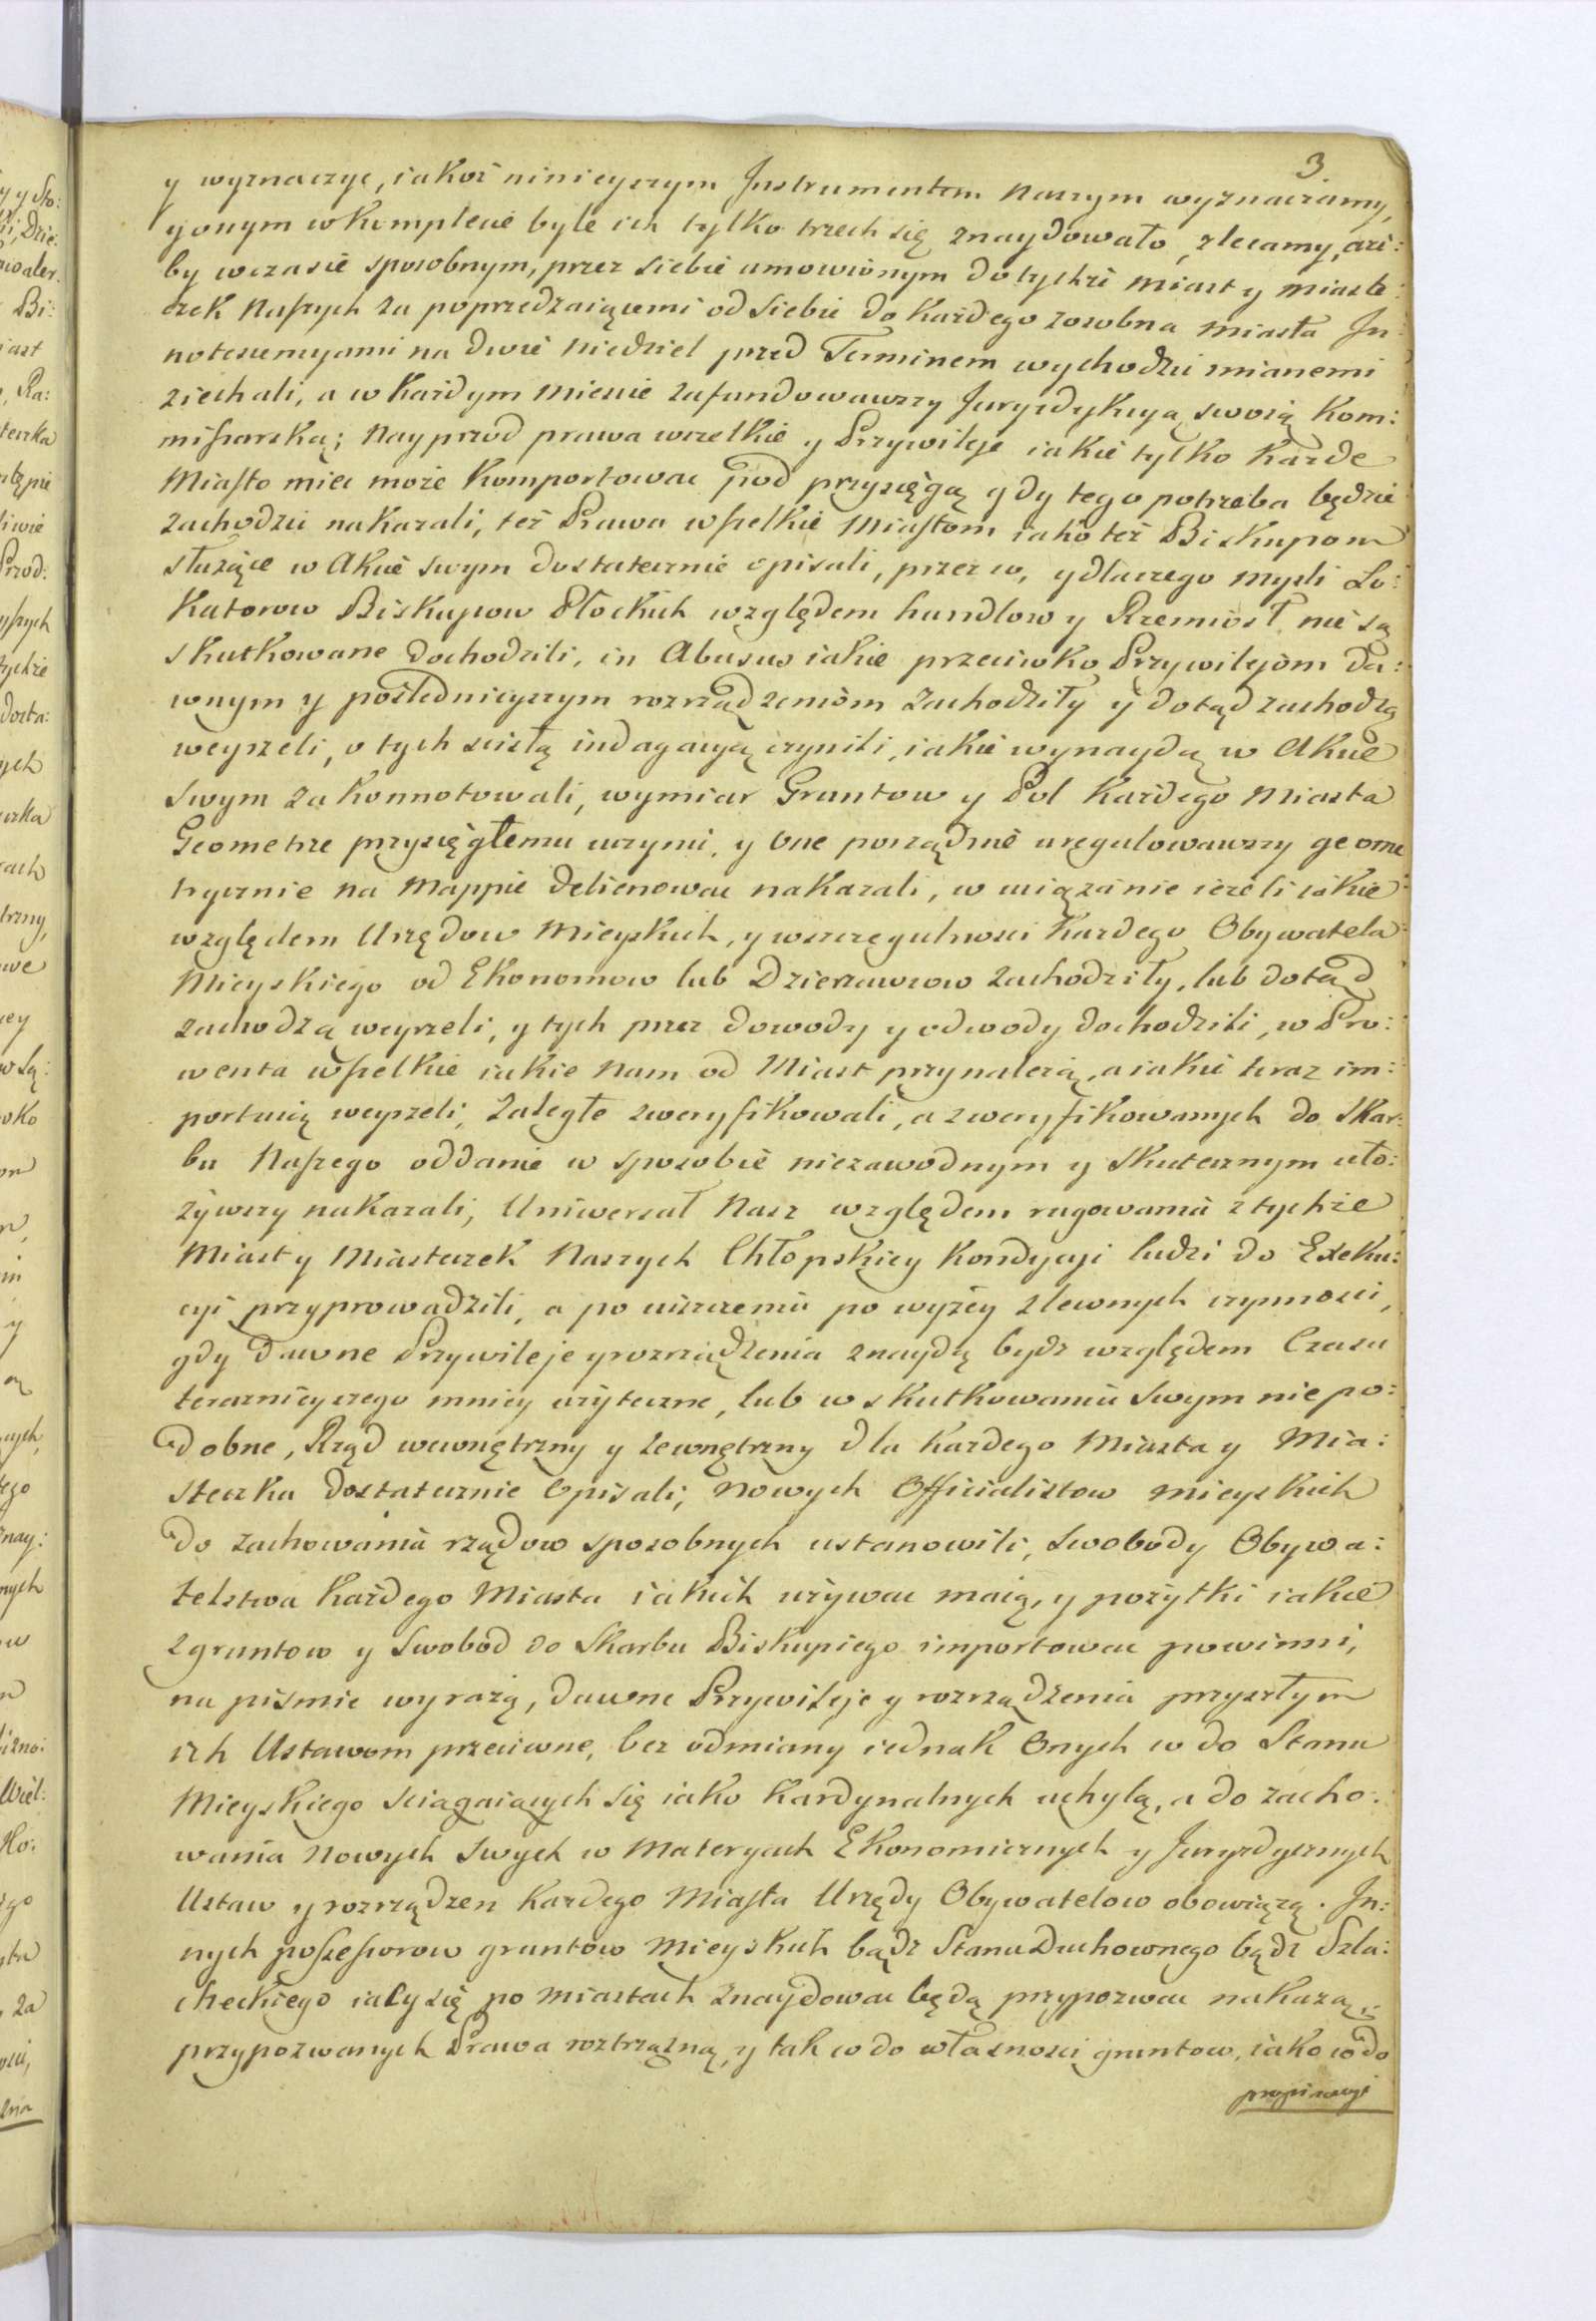 3.
y wyznaczyc, iakoż ninieyszym Instrumentem Naszym wyznaczamy,
y onym w komplecie byle ich tylko trzech się znaydowało, zlecamy, aże:
by w czasie sposobnym, przez siebie umowionym do tychże Miast y Miaste:
czek Naszych za poprzedzaiącemi od siebie do każdego zosobna Miasta In:
notescencyami na dwie Niedziel przed Terminem wychodzić mianemi
ziechali, a w każdym Mieście zafundowawszy Juryzdykcyą swoią Kom:
missarską; Nayprzod prawa wszelkie y Przywileje iakie tylko każde
Miasto mieć może komportować pod przysięgą gdy tego potrzeba będzie
zachodzić nakazali, też Prawa wszelkie Miastom iako też Biskupom
służące w Akcie swym dostatecznie opisali, przez co, y dlaczego mysli Lo:
katorow Biskupow Płockich względem handlow y Rzemiosł nie są
skutkowane dochodzili, in Abusus iakie przeciwko Przywilejom da:
wnym y poslednieyszym rozrządzeniom zachodziły y dotąd zachodzą
weyrzeli, o tych scisłą indagacyą czynili, iakie wynaydą w Akcie
swym zakonnotowali, wymiar Gruntow y Pol każdego Miasta
Geometrze przysięgłemu uczynić, y one porządnie uregulowawszy geome
trycznie na Mappie delienować nakazali, w uciążenie ieżeli iakie
względem Urzędow Mieyskich, y wszczegulnosci każdego Obywatela
Mieyskiego od Ekonomow lub Dzierżawcow zachodziły, lub dotąd
zachodzą weyrzeli, y tych przez dowody y odwody dochodzili, w Pro:
wenta wszelkie iakie Nam od Miast przynależą, a iakie teraz im:
portuią weyrzeli, zaległe zweryfikowali, a zweryfikowanych do Skar:
bu Naszego oddanie w sposobie niezawodnym y skutecznym uło:
żywszy nakazali, Uniwersał Nasz względem rugowania z tychże
Miast y Miasteczek Naszych Chłopskiey Kondycyi ludzi do Exeku:
cyi przyprowadzili, a po uiszczeniu po wyżey zleconych czynnosci,
gdy dawne Przywileje y rozrządzenia znaydą bydz względem Czasu
teraznieyszego mniey użyteczne, lub w skutkowaniu swym niepo:
dobne, Rząd wewnętrzny y zewnętrzny dla każdego Miasta y Mia:
steczka dostatecznie opisali, Nowych Officialistow mieyskich
do zachowania rządow sposobnych ustanowili, Swobody Obywa:
telstwa każdego Miasta iakich używać maią, y pożytki iakie
z gruntow y Swobod do Skarbu Biskupiego importować powinni,
na pismie wyrażą, dawne Przywileje y rozrządzenia przyszłym
ich Ustawom przeciwne, bez odmiany iednak onych co do Stanu
Mieyskiego sciągaiących się iako kardynalnych uchylą, a do zacho:
wania Nowych swych w Materyach Ekonomicznych y Juryzdycznych
Ustaw y rozrządzen każdego Miasta Urzędy Obywatelow obowiążą. In:
nych possessorow gruntow Mieyskich bądz Stanu Duchownego bądz Szla:
checkiego iacy się po Miastach znaydować będą przypozwać nakażą,
przypozwanych Prawa roztrząsną, y tak co do własnosci gruntow, iako co do
propinacyi